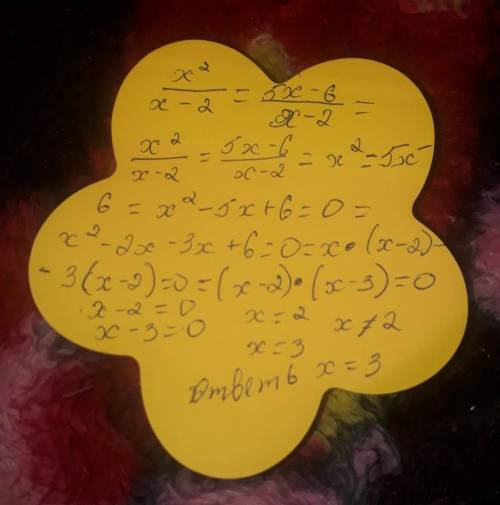 x²/(x-2) = (5x-6)/(x-2) =
x²/(x-2) = (5x-6)/(x-2) = x² = 5x-
6 = x² - 5x + 6 = 0 =
x² - 2x - 3x + 6 = 0 = x • (x-2) -
- 3(x-2) = 0 = (x-2) • (x-3) = 0
x - 2 = 0 x = 2 x ≠ 2
x - 3 = 0 x = 3
ответь x = 3